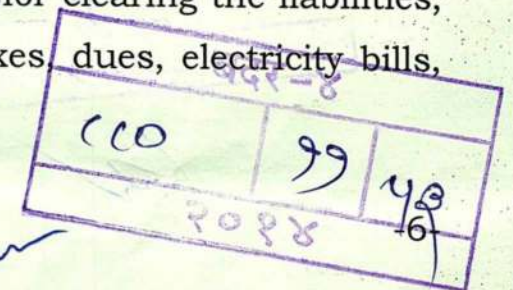 for clearing the liabilities,
xes, dues, electricity bills,
वदर-४
८८० ११ ५३
२०१४
-6-